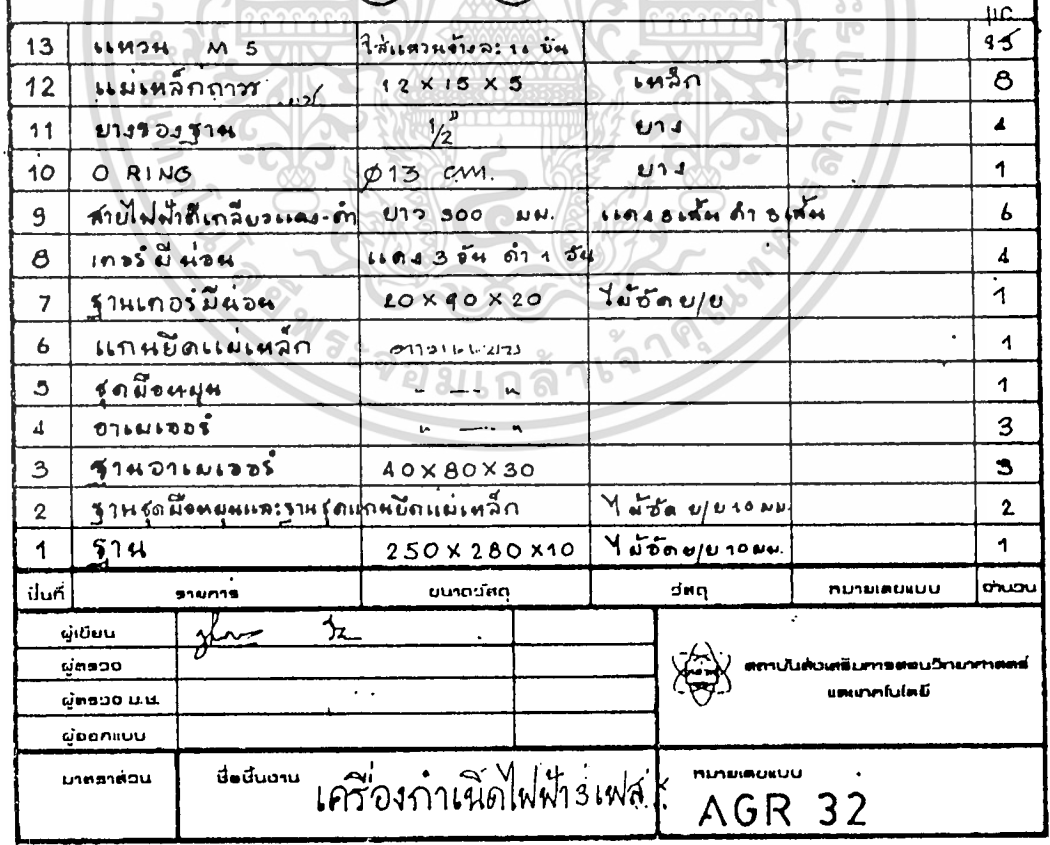 13 แหวน M 5 ใส่แหวนข้างละ
12 แม่เหล็กถาวร 12 × 15 × 5 เหล็ก 8
11 ยางรองฐาน 1/2" ยาง 4
10 O RING Ø13 cm. ยาง 1
9 สายไฟฟ้าตีเกลียวแดง-ดำ ยาว 300 มม. แดง 3 เส้น ดำ 3 เส้น 6
8 เทอร์มีน่อน แดง 3 อัน ดำ 1 อัน 4
7 ฐานเทอร์มีน่อน 20 × 90 × 20 ไม้อัด ย/ย 1
6 แกนยึดแม่เหล็ก 1
5 ชุดมือหมุน " — " 1
4 อาเมเจอร์ " — " 3
3 ฐานอาเมเจอร์ 40 × 80 × 30 3
2 ฐานชุดมือหมุนและฐานชุดแกนยึดแม่เหล็ก ไม้อัด ย/ย 10 มม. 2
1 ฐาน 250 × 280 × 10 ไม้อัด ย/ย 10 มม. 1
ชิ้นที่ รายการ ขนาดวัสดุ วัสดุ หมายเลขแบบ จำนวน
ผู้เขียน
ผู้ตรวจ
ผู้ตรวจ ม.ช.
ผู้ออกแบบ
สถาบันส่งเสริมการสอนวิทยาศาสตร์
และเทคโนโลยี
มาตราส่วน ชื่อชิ้นงาน เครื่องกำเนิดไฟฟ้า 3 เฟส
หมายเลขแบบ
AGR 32